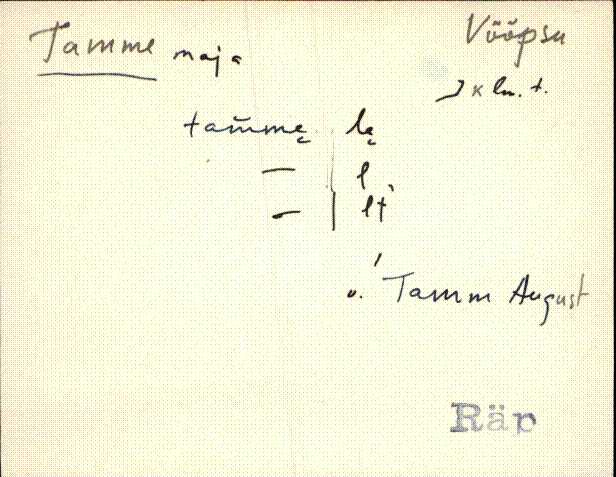 Tamme maja
Vööpsu
k ln. t.
tam̆mę lę
— l
— lt
o. Tamm August
Räp